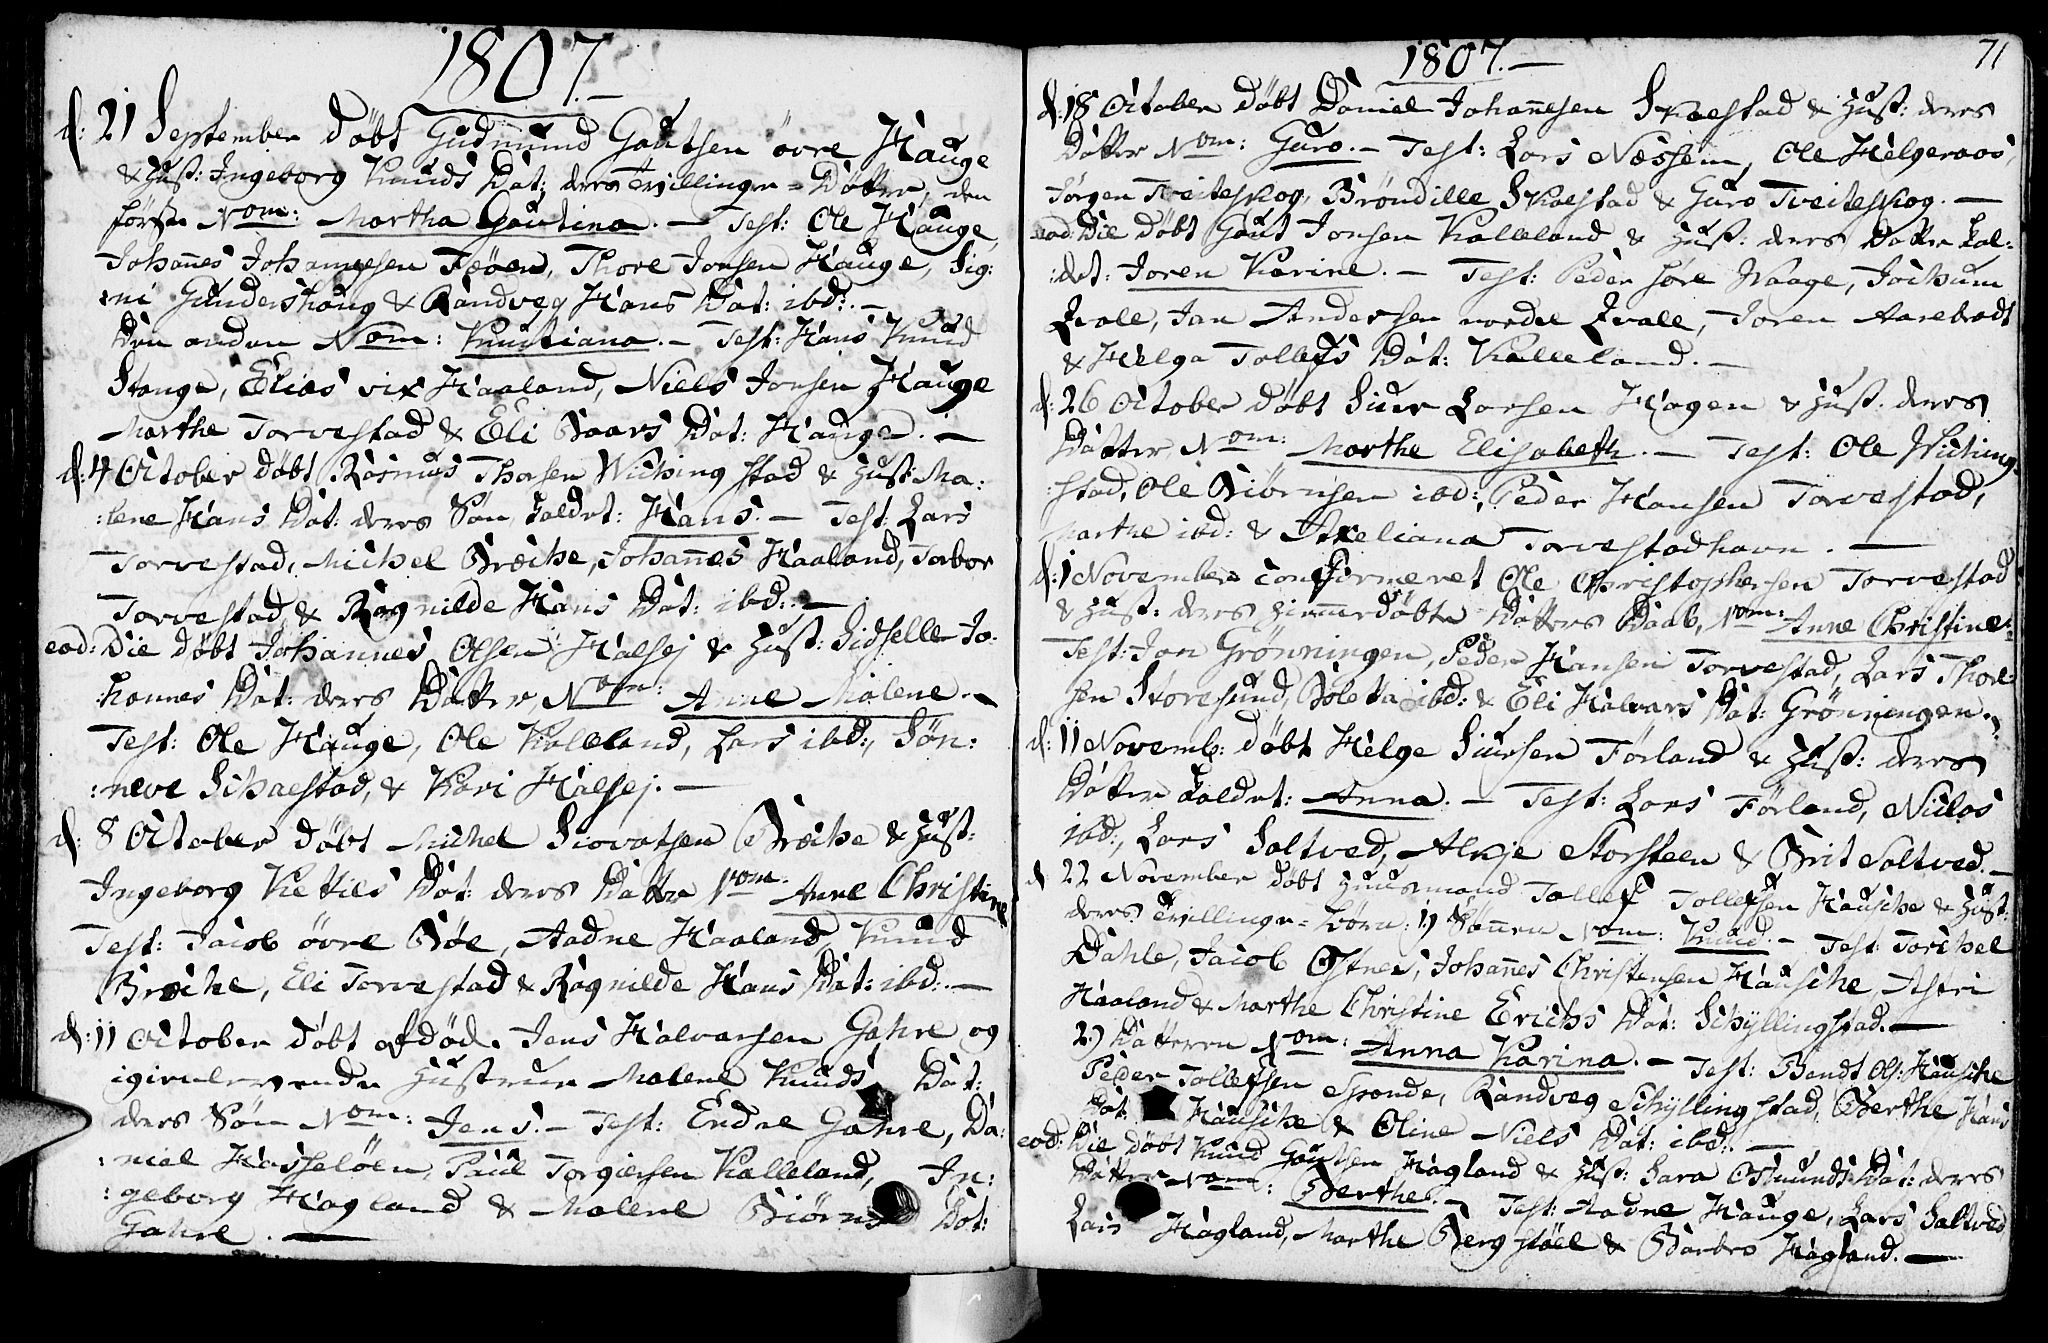 1807.
d: 21 September døbt Gudmund Gautsen øvre Hauge
& Hust: Ingeborg Knuds Dat: deres Tvillinger-Døttre, den
første Nom: Martha Gautina. — Test: Ole Hauge,
Johannes Johannesen Fæøen, Thore Jonsen Hauge, Sig:
:ni Gundershaug & Randveg Hans Dat: ibd: —
Den anden Nom: Knutiana. — Test: Hans Knud
Stange, Elias vix Haaland, Niels Jonsen Hauge
Marthe Torvestad & Eli Baars Dat: Hauge. —
d: 4 October døbt Rasmus Thorsen Wiching stad & Hust: Ma:
:lene Hans Dat: deres Søn kaldet: Hans. — Test: Lars
Torvestad, Michel Bræche, Johannes Haaland, Torbor
Torvestad & Ragnilde Hans Dat: ibd: —
eod: Die døbt Johannes Olsen Halsej & Hust: Sidselle Jo:
:hannes Dat: deres Datter, Nom: Anne Malene. —
Test: Ole Hauge, Ole Kalleland, Lars ibd:, Søn:
:neve Schaestad, & Kari Halsej. —
d: 8 October døbt Michel Siovatsen Bræche & Hust:
Ingeborg Kettils Dat: deres Datter Nom: Anne Christine
Test: Jacob øvre Bøe, Aadne Haaland, Knud
Bræche, Eli Torvestad & Ragnilde Hans Dat: ibd: —
d: 11 October døbt afdød. Jens Halvarsen Gahre og
igienlevende Hustrue Malene Knuds Dat:
deres Søn Nom: Jens. — Test: Endre Gahre, Da:
:niel Hasseløen, Povel Torgiersen Kalleland, In:
:geborg Hagland & Malene Biørns Dat:
Gahre. —
1807. —
71
d: 18 October døbt Daniel Johannesen Skaestad & Hust: deres
Datter Nom: Guro. — Test: Lars Næssem, Ole Helgeraas,
Jørgen Tveiteskog, Brøndille Skaestad & Guro Tveiteskog. —
eod: Die døbt Gaut Jonsen Kalleland & Hust: deres Datter kal:
:det: Joren Karine. — Test: Peder søre Waage, Jochum
Qvale, Jan Andersen nordre Qvale, Joren Aarebrodt
& Helga Tollefs Dat: Kalleland. —
d: 26 October døbt Siur Larsen Hagen & Hust: deres
Datter Nom: Marthe Elisabeth. — Test: Ole Wiching:
:stad, Ole Biørnsen ibd:, Peder Hansen Torvestad,
Marthe ibd: & Axeliana Torvestadhavn. —
d: 1 November confirmeret Ole Christophersen Torvestad
& Hust: deres hiemmedøbte Datters Daab, Nom: Anne Christine.
Test: Jon Grønningen, Peder Hansen Torvestad, Lars Thor:
sen Storesund, Boletta ibd: & Eli Halvars Dat: Grønningen.
d: 11 Novemb: døbt Helge Siursen Førland & Hust: deres
Datter kaldet: Anna. — Test: Lars Førland, Niclos
ibd:, Lars Saltved, Alkje Storsteen & Brit Saltved. —
d 22 November døbt Huusmand Tollef Tollefsen Hausche & Hust:
deres Tvillinge-børn: 1) Sønnen Nom: Knud. — Test: Torchel
Dahle, Jacob Østnes, Johannes Christensen Hausche, Astri
Haaland & Marthe Christine Erichs Dat: Schyllingstad. —
2) Datteren Nom: Anna Karina. — Test: Bendt Ols: Hausche
Peder Tollefsen Spande, Randveg Schyllingstad, Berthe Hans
Dat: Hausche & Oline Niels Dat: ibd: —
eod: Die døbt Knud Gautsen Hagland & Hust: Sara Osmunds Dat: deres
Datter Nom: Berthe. — Test: Aadne Hauge, Lars Saltved
Lars Hagland, Marthe Bergstøel & Barbro Hagland. —